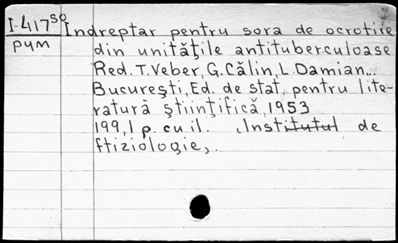 I-417⁵⁰ Îndreptar pentru sora de ocrotire
рум din unităţile antituberculoase
Red. T. Veber, G. Călin, L. Damian...
Bucureşti, Ed. de stat pentru lite-
ratură ştiinţifică, 1953
199,1 p. cu il. „Institutul de
ftiziologie„.